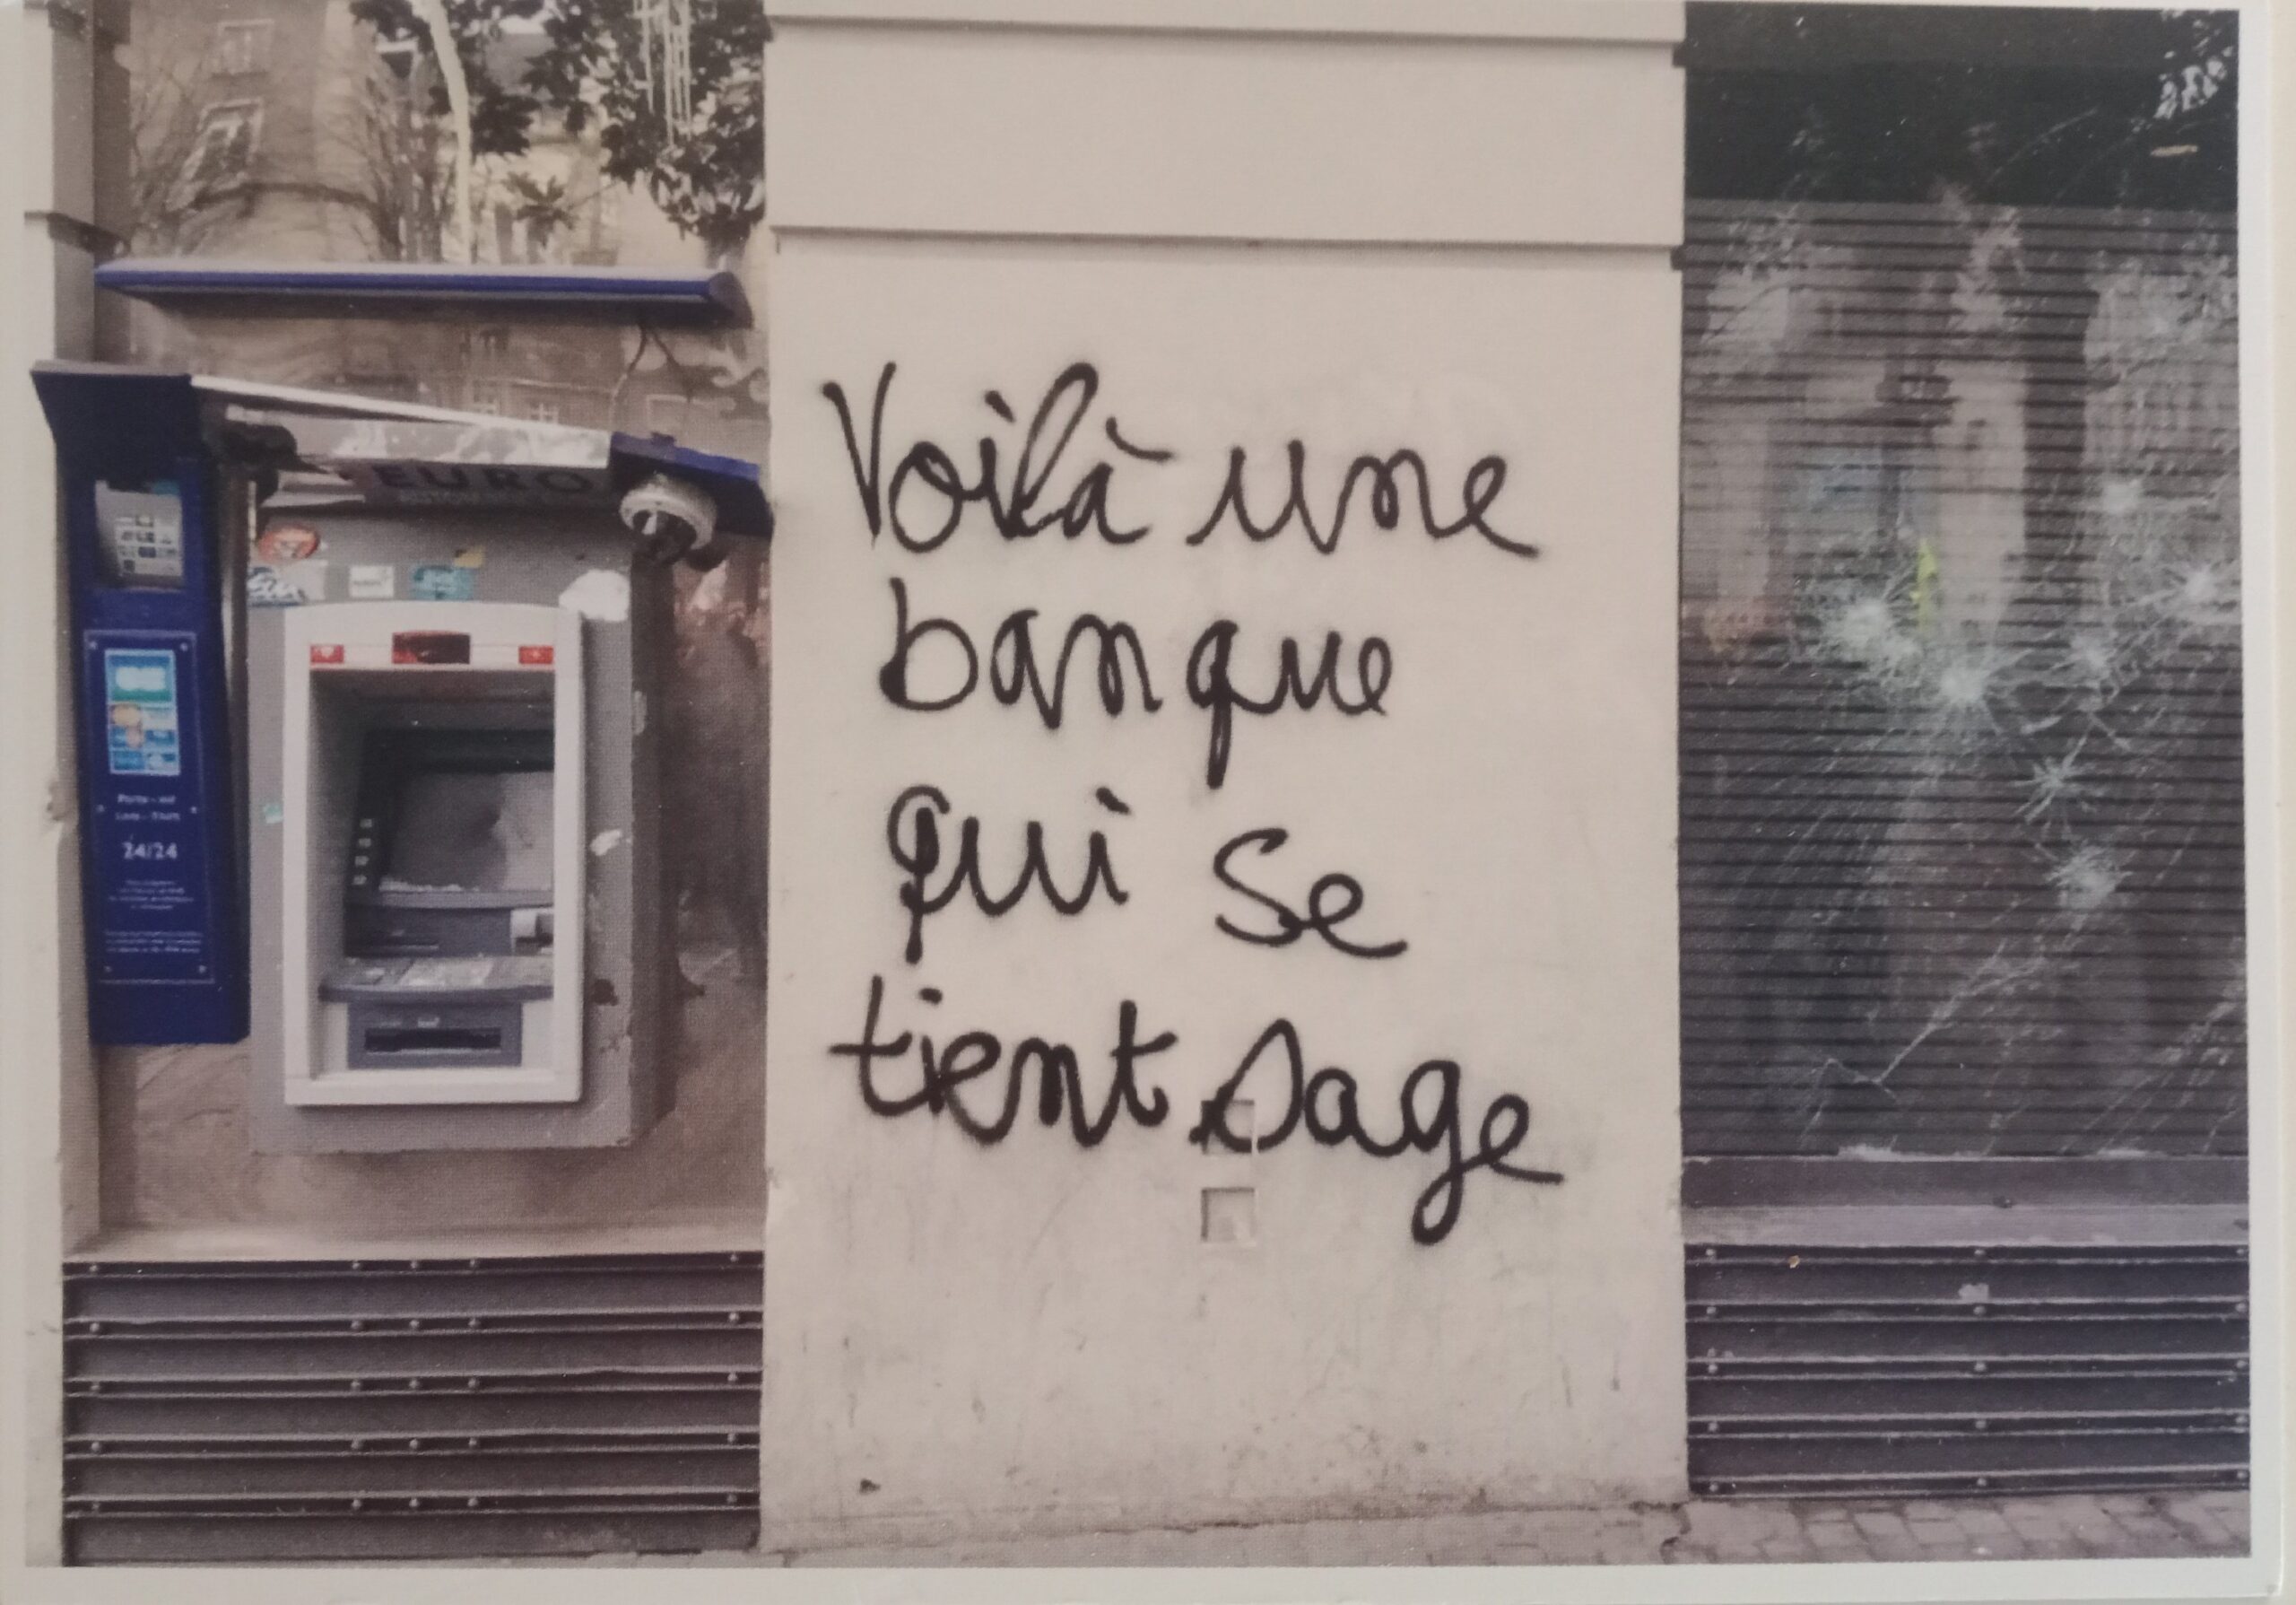 EURO
24/24
Voilà une
banque
qui se
tient sage